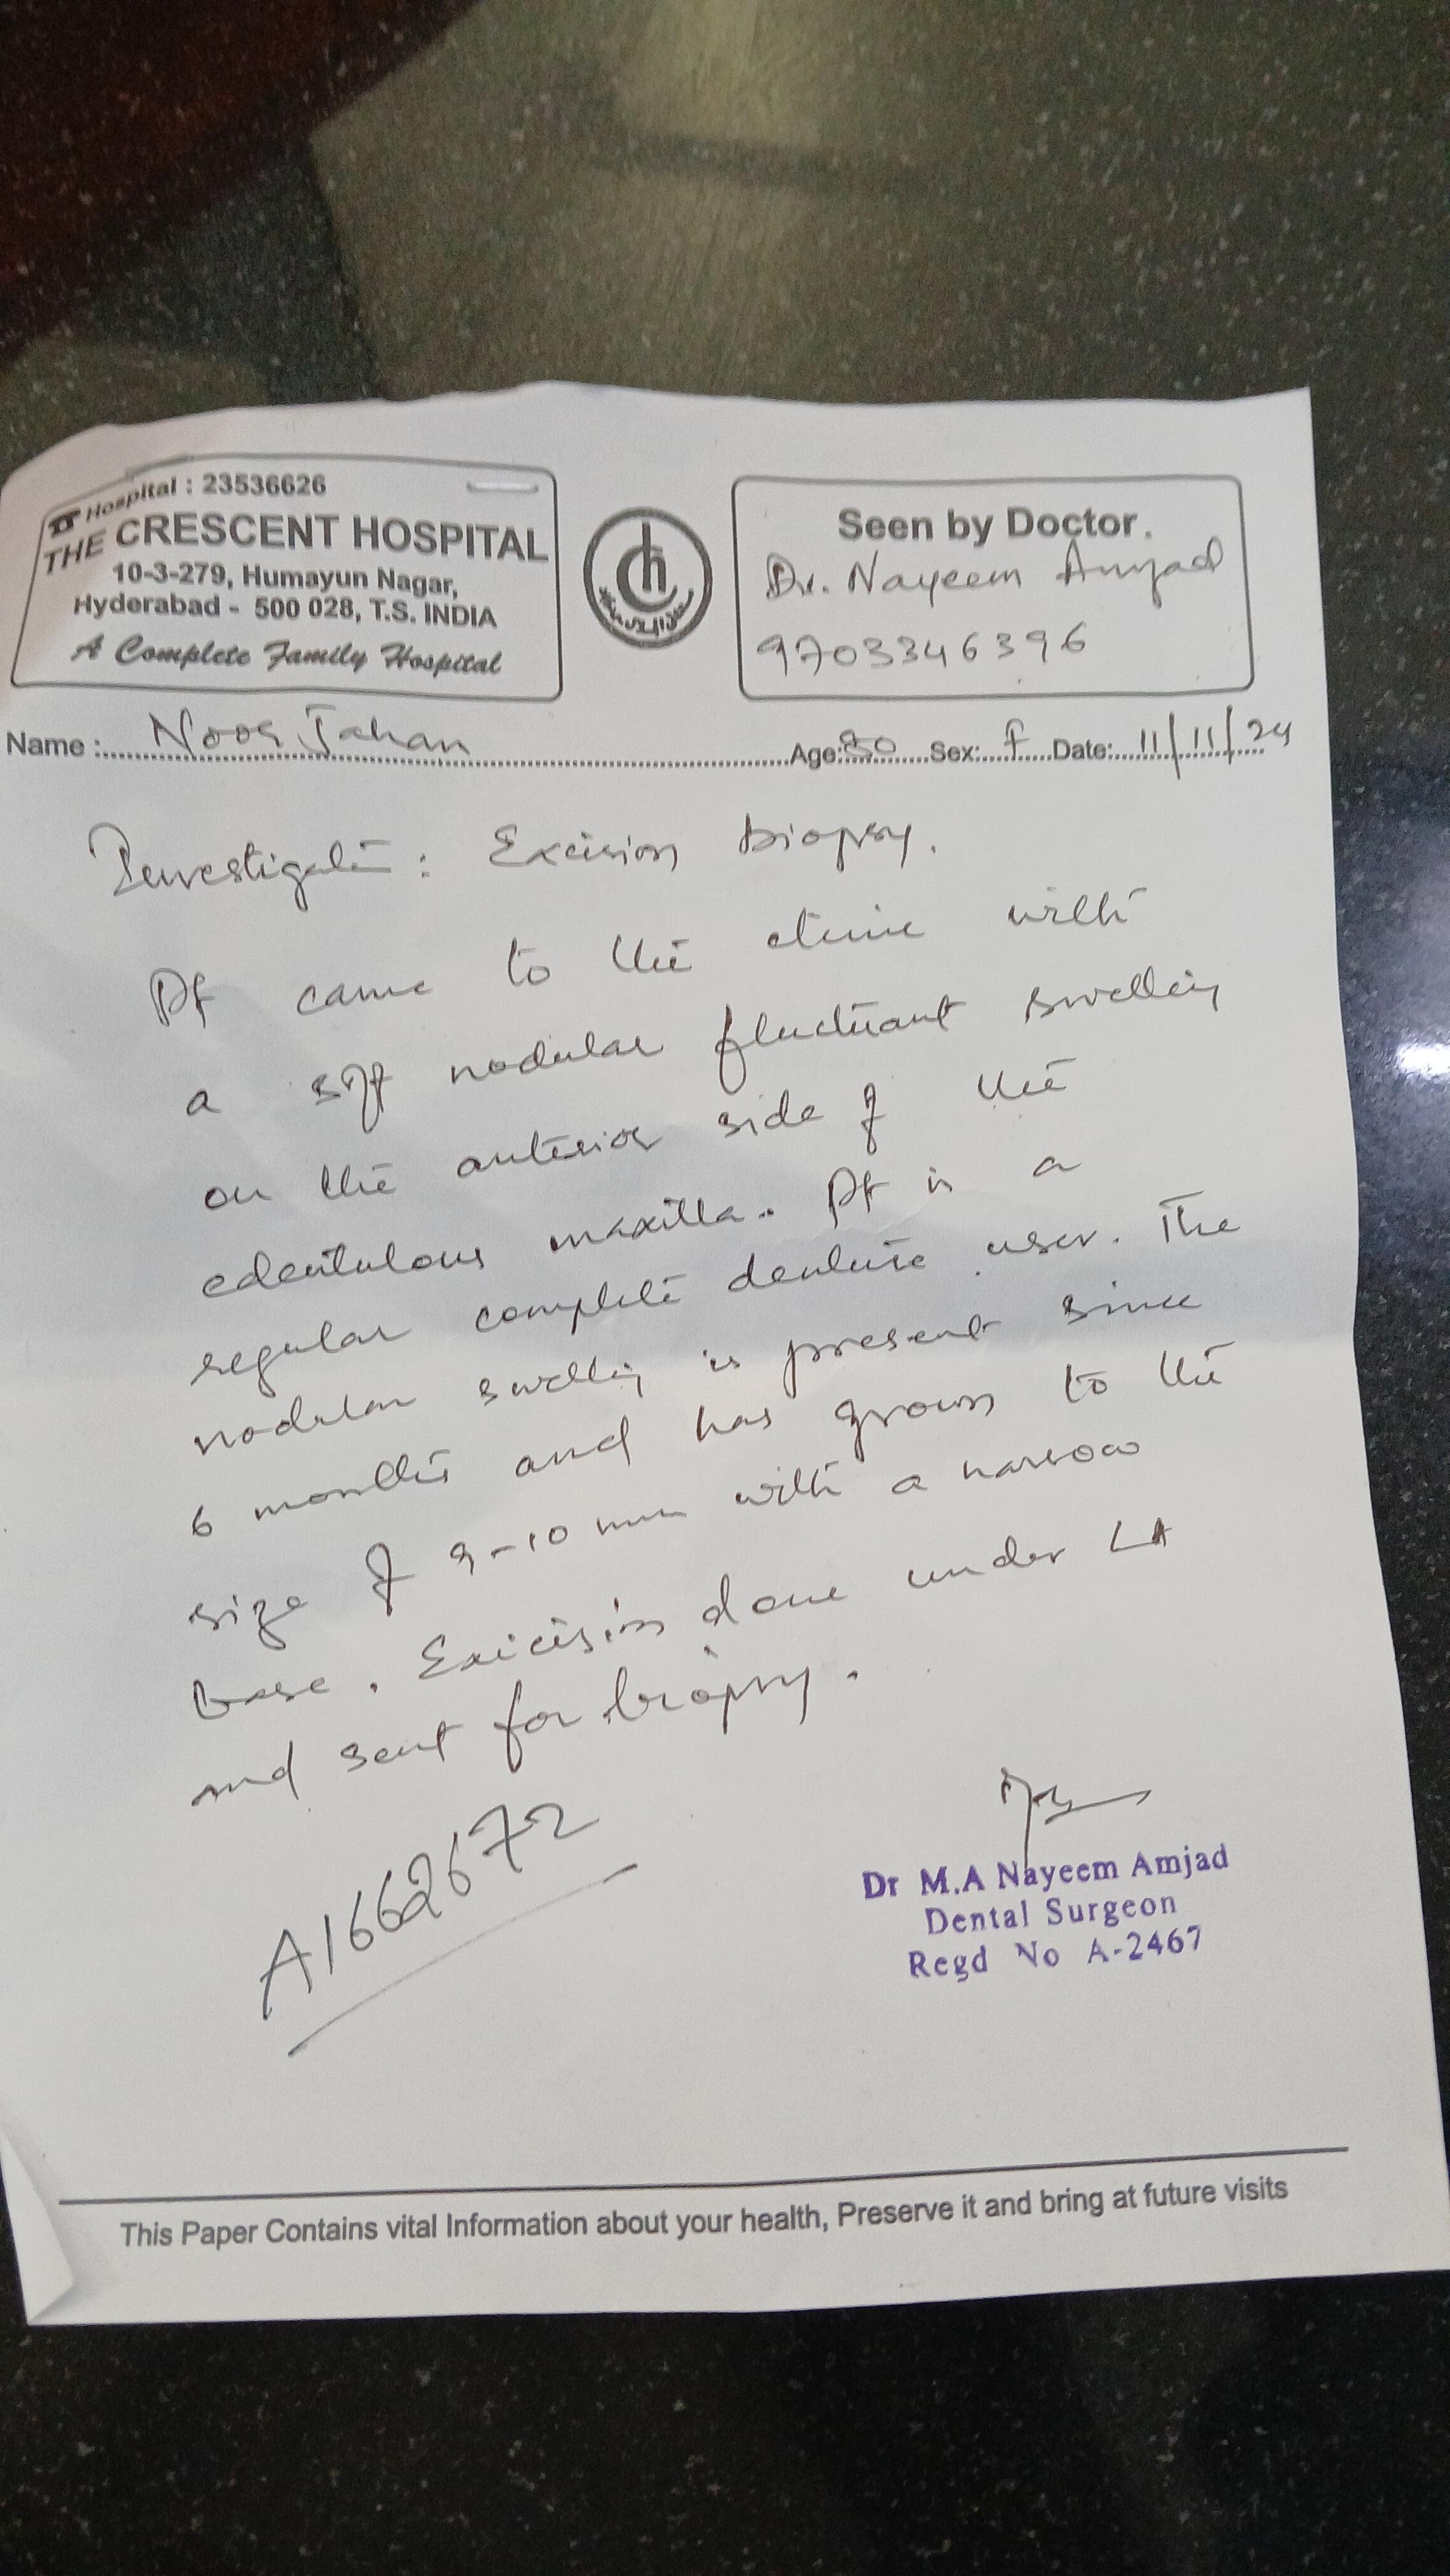 Hospital : 23536626
THE CRESCENT HOSPITAL
10-3-279, Humayun Nagar,
Hyderabad - 500 028, T.S. INDIA
A Complete Family Hospital
Seen by Doctor.
Dr. Nayeem Amjad
9703346396
Name : Noor Jahan Age: 80 Sex: F Date: 11/11/24
Investigati : Excision Biopsy.
Pt came to the clinic with
a soft nodular fluctuant swelling
on the anterior side of the
edentulous maxilla. Pt is a
regular complete denture user. The
nodular swelling is present since
6 months and has grown to the
size of 9-10 mm with a narrow
base. Exicision done under LA
and sent for biopsy.
A1662672
Dr M.A Nayeem Amjad
Dental Surgeon
Regd No A-2467
This Paper Contains vital Information about your health, Preserve it and bring at future visits